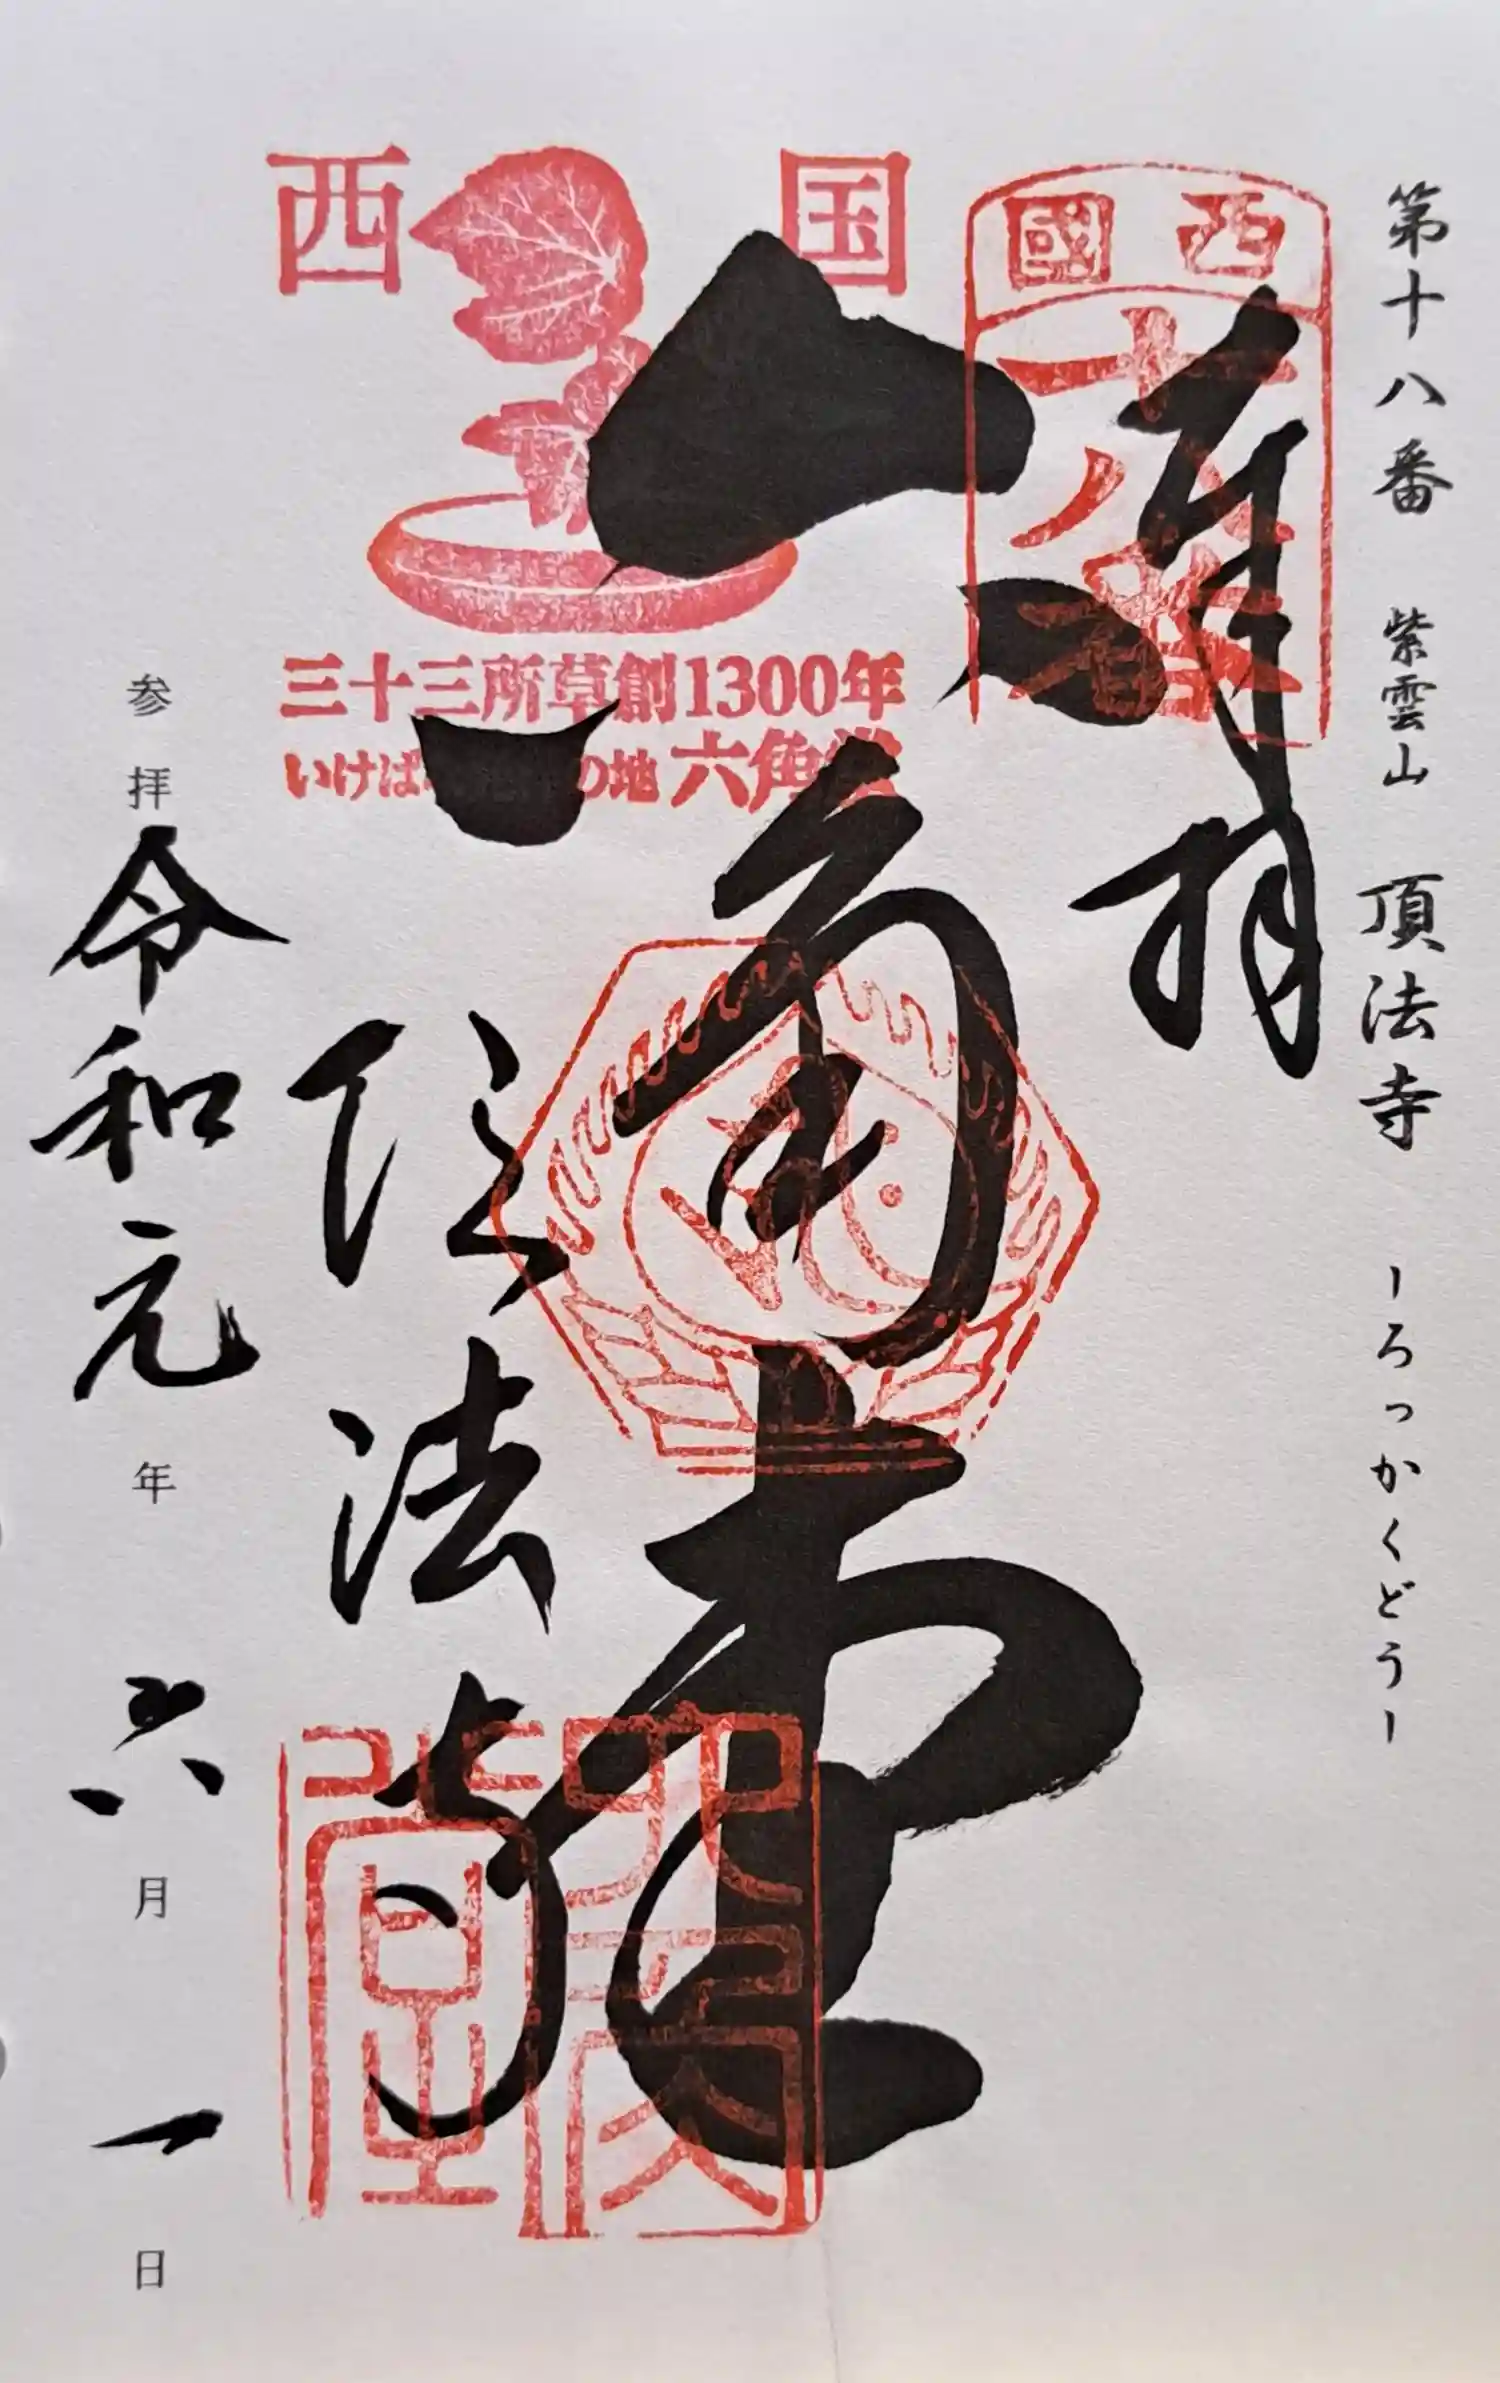 第十八番 紫雲山 頂法寺 ーろっかくどうー
奉拝
西國
十八番
六角堂
西国
三十三所草創1300年
いけばな の地 六角堂
頂法寺
参拝 令和元年 六月 一日